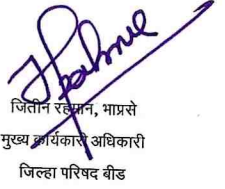 जितीन रहमान, भाप्रसे
मुख्य कार्यकारी अधिकारी
जिल्हा परिषद बीड